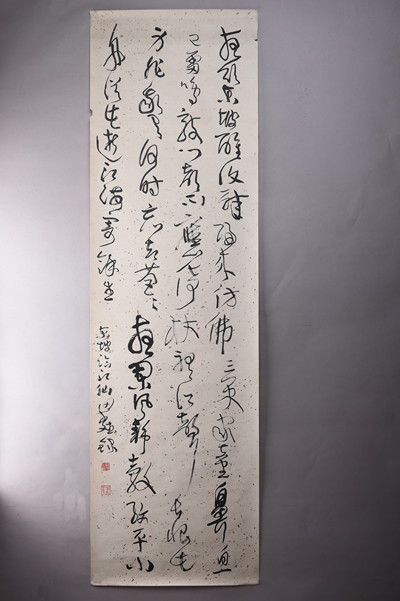 夜飲東坡醒復醉歸來仿佛三更家童鼻息
已雷鳴敲門都不應倚杖聽江聲長恨此
身非我有何時忘却營々夜闌風靜縠紋平小
舟從此逝江海寄餘生
東坡臨江仙 錄